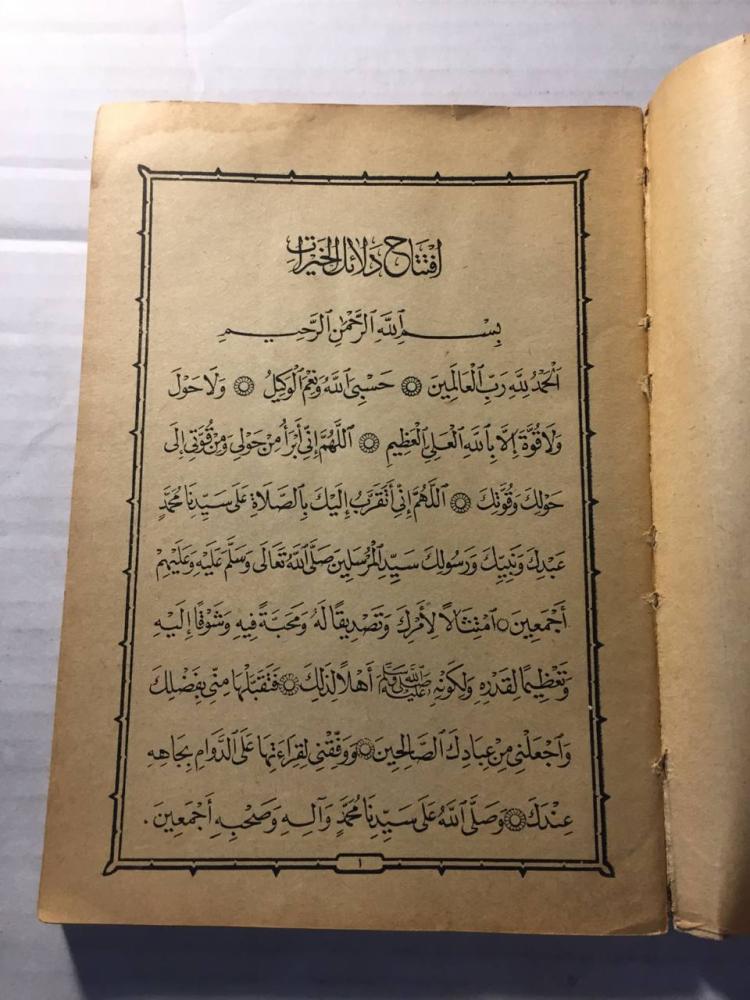 افتتاح دلائل الخيرات
بِسْمِ ٱللَّهِ ٱلرَّحْمٰنِ ٱلرَّحِيمِ
اَلْحَمْدُ لِلَّهِ رَبِّ ٱلْعَالَمِينَ ۞ حَسْبِيَ ٱللَّهُ وَنِعْمَ ٱلْوَكِيلُ ۞ وَلَا حَوْلَ
وَلَا قُوَّةَ إِلَّا بِٱللَّهِ ٱلْعَلِيِّ ٱلْعَظِيمِ ۞ اَللَّهُمَّ إِنِّي أَبْرَأُ مِنْ حَوْلِي وَمِنْ قُوَّتِي إِلَى
حَوْلِكَ وَقُوَّتِكَ ۞ اَللَّهُمَّ إِنِّي أَتَقَرَّبُ إِلَيْكَ بِٱلصَّلَاةِ عَلَى سَيِّدِنَا مُحَمَّدٍ
عَبْدِكَ وَنَبِيِّكَ وَرَسُولِكَ سَيِّدِ ٱلْمُرْسَلِينَ صَلَّى ٱللَّهُ تَعَالَى وَسَلَّمَ عَلَيْهِ وَعَلَيْهِمْ
أَجْمَعِينَ ۞ اِمْتِثَالًا لِأَمْرِكَ وَتَصْدِيقًا لَهُ وَمَحَبَّةً فِيهِ وَشَوْقًا إِلَيْهِ
وَتَعْظِيمًا لِقَدْرِهِ وَلِكَوْنِهِ ﷺ أَهْلًا لِذَلِكَ ۞ فَتَقَبَّلْهَا مِنِّي بِفَضْلِكَ
وَٱجْعَلْنِي مِنْ عِبَادِكَ ٱلصَّالِحِينَ ۞ وَوَفِّقْنِي لِقِرَاءَتِهَا عَلَى ٱلدَّوَامِ بِجَاهِهِ
عِنْدَكَ ۞ وَصَلَّى ٱللَّهُ عَلَى سَيِّدِنَا مُحَمَّدٍ وَآلِهِ وَصَحْبِهِ أَجْمَعِينَ .
١